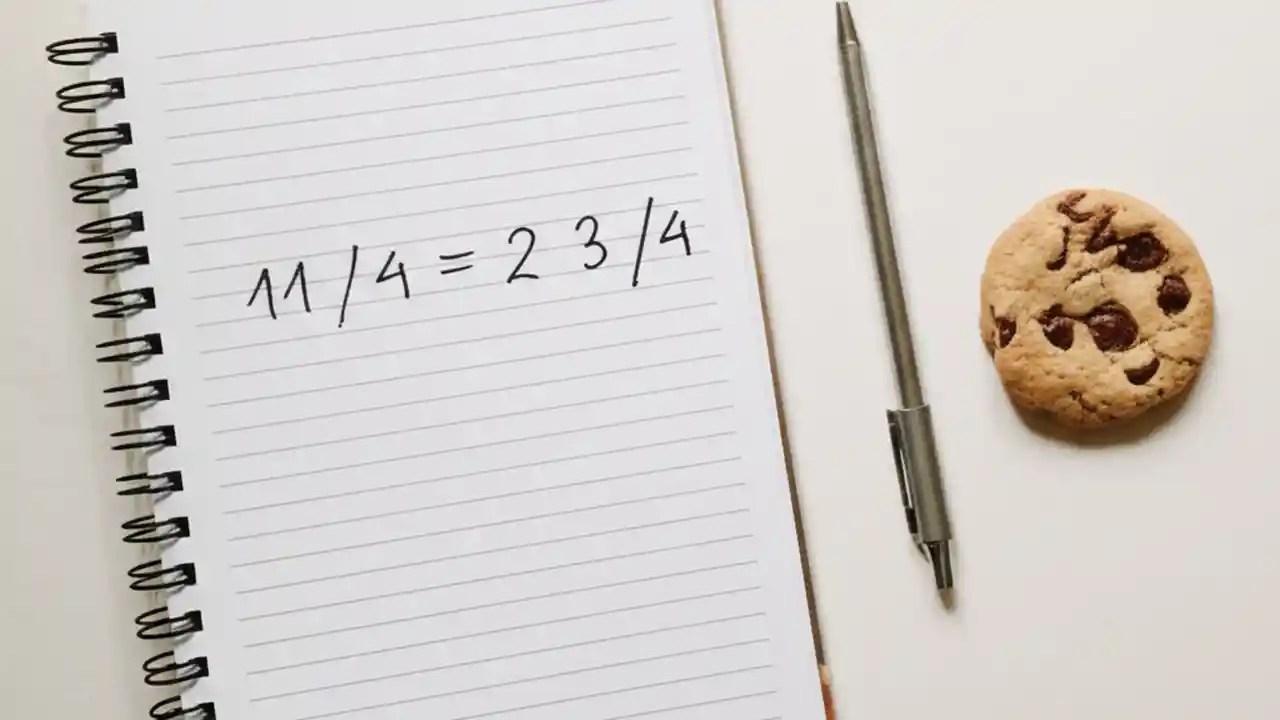 11/4 = 2 3/4